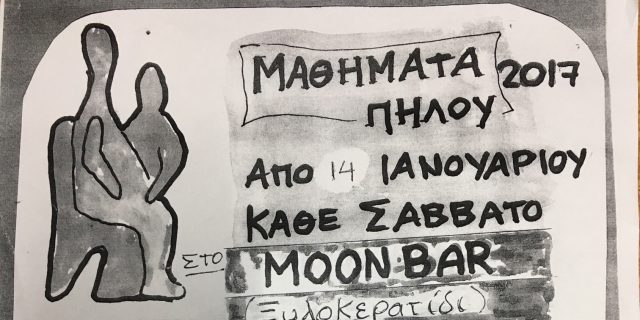 ΜΑΘΗΜΑΤΑ 2017
ΠΗΛΟΥ
ΑΠΟ 14 ΙΑΝΟΥΑΡΙΟΥ
ΚΑΘΕ ΣΑΒΒΑΤΟ
ΣΤΟ MOON BAR
(Ξυλοκερατίδι)